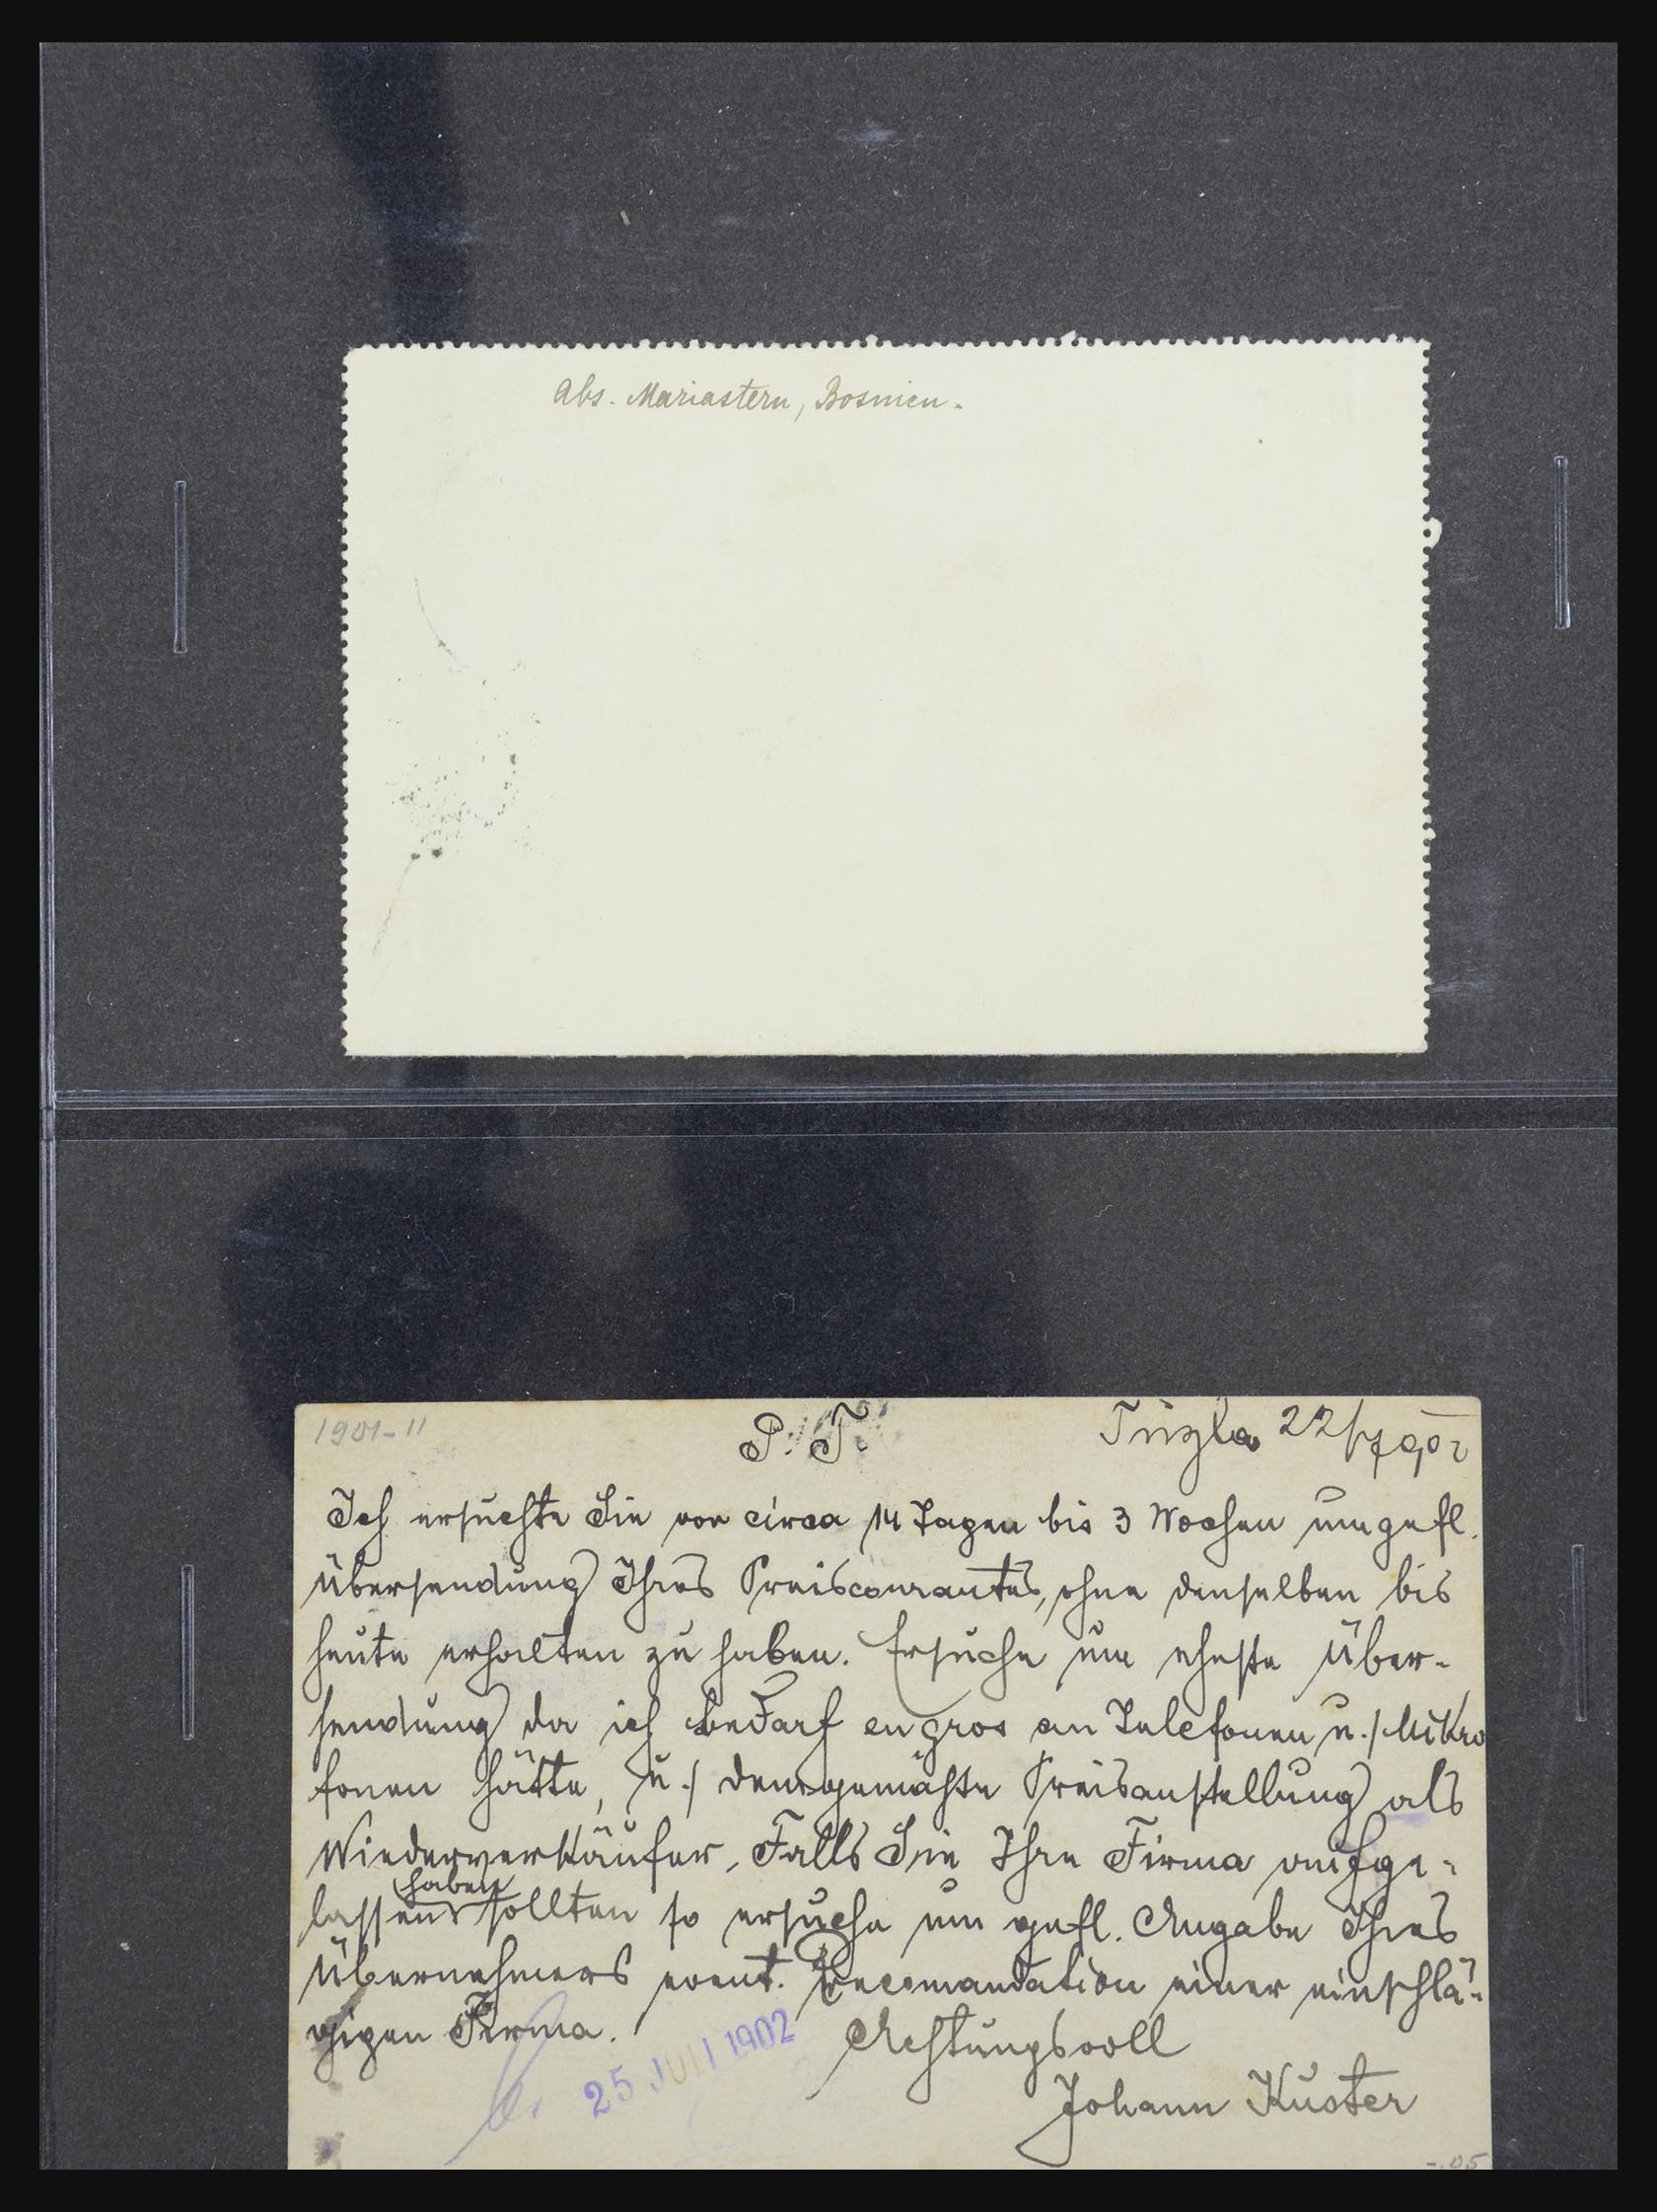 Abs. Mariastern, Bosnien.
1901-11
P. T.
Tuzla 22/7 902
Ich ersuchte Sie vor circa 14 Tagen bis 3 Wochen um gefl.
Übersendung Ihres Preiscourantes, ohne denselben bis
heute erhalten zu haben. Ersuche um eheste Über-
sendung da ich Bedarf en gros an Telefonen u./ Mikro
fonen hätte, u./ demgemähste Preisanstellung als
Wiederverkäufer. Falls Sie Ihre Firma aufge-
haben
lassen sollten so ersuche um gefl. Angabe Ihres
Übernehmers event. Recomandation einer einschlä-
gigen Firma.
Achtungsvoll
25 JULI 1902
Johann Kuster
-.05